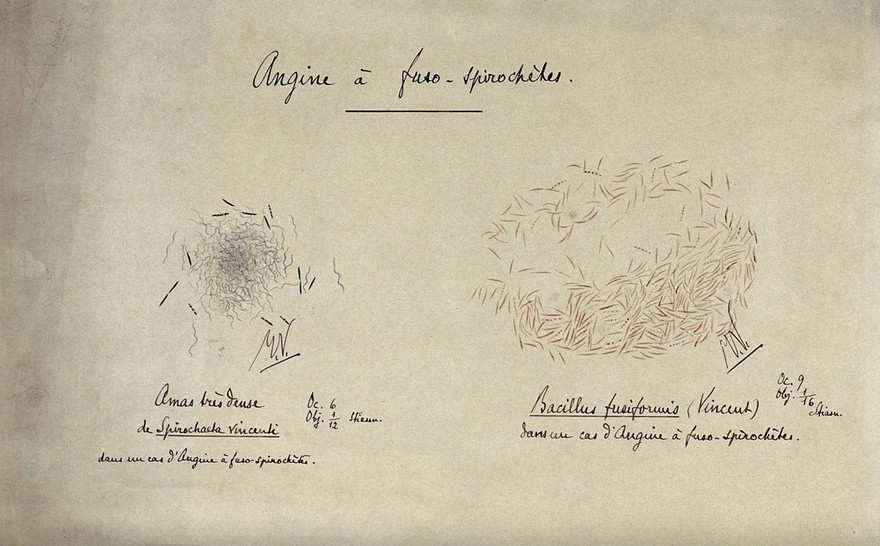 Angine à fuso-spirochètes.
M.V.
Amas très dense
de Spirochaeta Vincenti
dans un cas d'Angine à fuso-spirochètes.
Oc. 6
Obj. 1/12 Stiassn.
M.V.
Bacillus fusiformis (Vincent)
dans un cas d'Angine à fuso-spirochètes.
Oc. 9
Obj. 1/16
Stiassn.